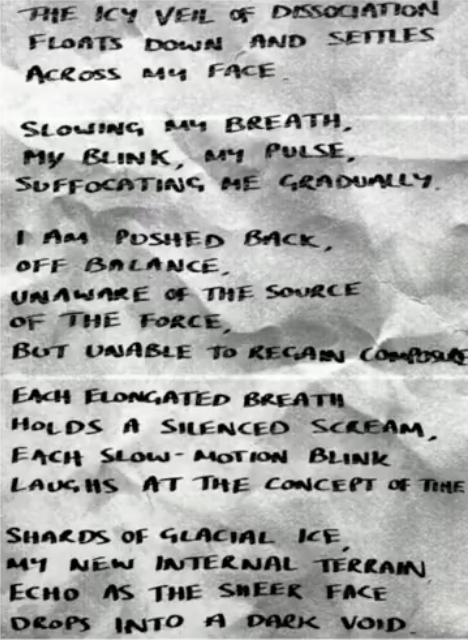 THE ICY VEIL OF DISSOCIATION
FLOATS DOWN AND SETTLES
ACROSS MY FACE.
SLOWING MY BREATH,
MY BLINK, MY PULSE,
SUFFOCATING ME GRADUALLY.
I AM PUSHED BACK,
OFF BALANCE,
UNAWARE OF THE SOURCE
OF THE FORCE,
BUT UNABLE TO REGAIN COMPOSURE
EACH ELONGATED BREATH
HOLDS A SILENCED SCREAM,
EACH SLOW-MOTION BLINK
LAUGHS AT THE CONCEPT OF TIME
SHARDS OF GLACIAL ICE,
MY NEW INTERNAL TERRAIN,
ECHO AS THE SHEER FACE
DROPS INTO A DARK VOID.